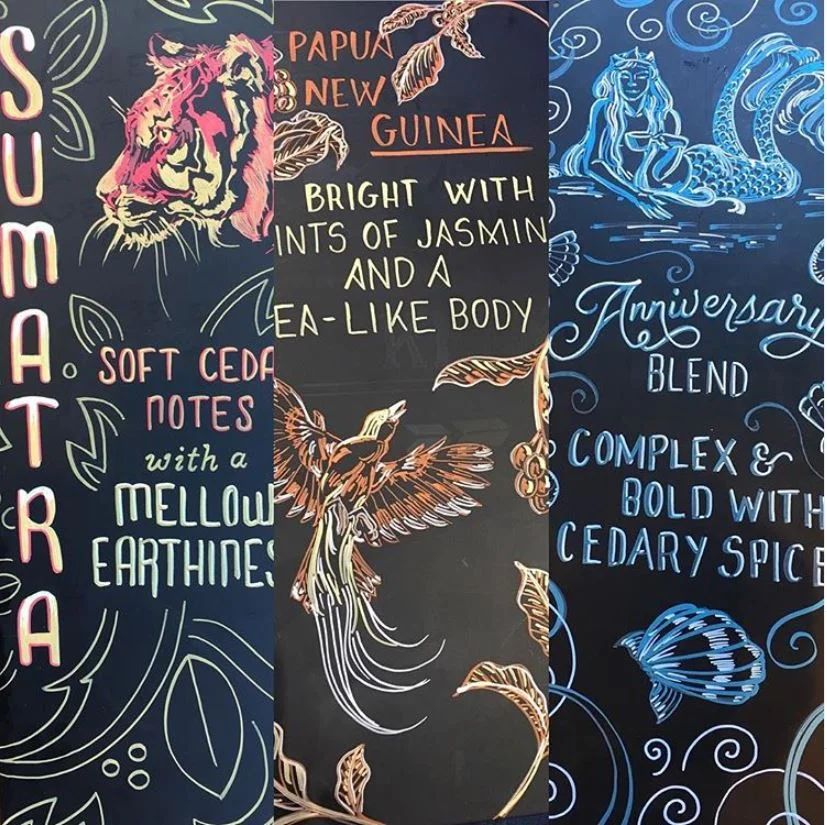 SUMATRA
SOFT CEDA
NOTES
with a
MELLOW
EARTHINES
PAPUA
NEW
GUINEA
BRIGHT WITH
INTS OF JASMIN
AND A
EA-LIKE BODY
Anniversary
BLEND
COMPLEX &
BOLD WITH
CEDARY SPICE